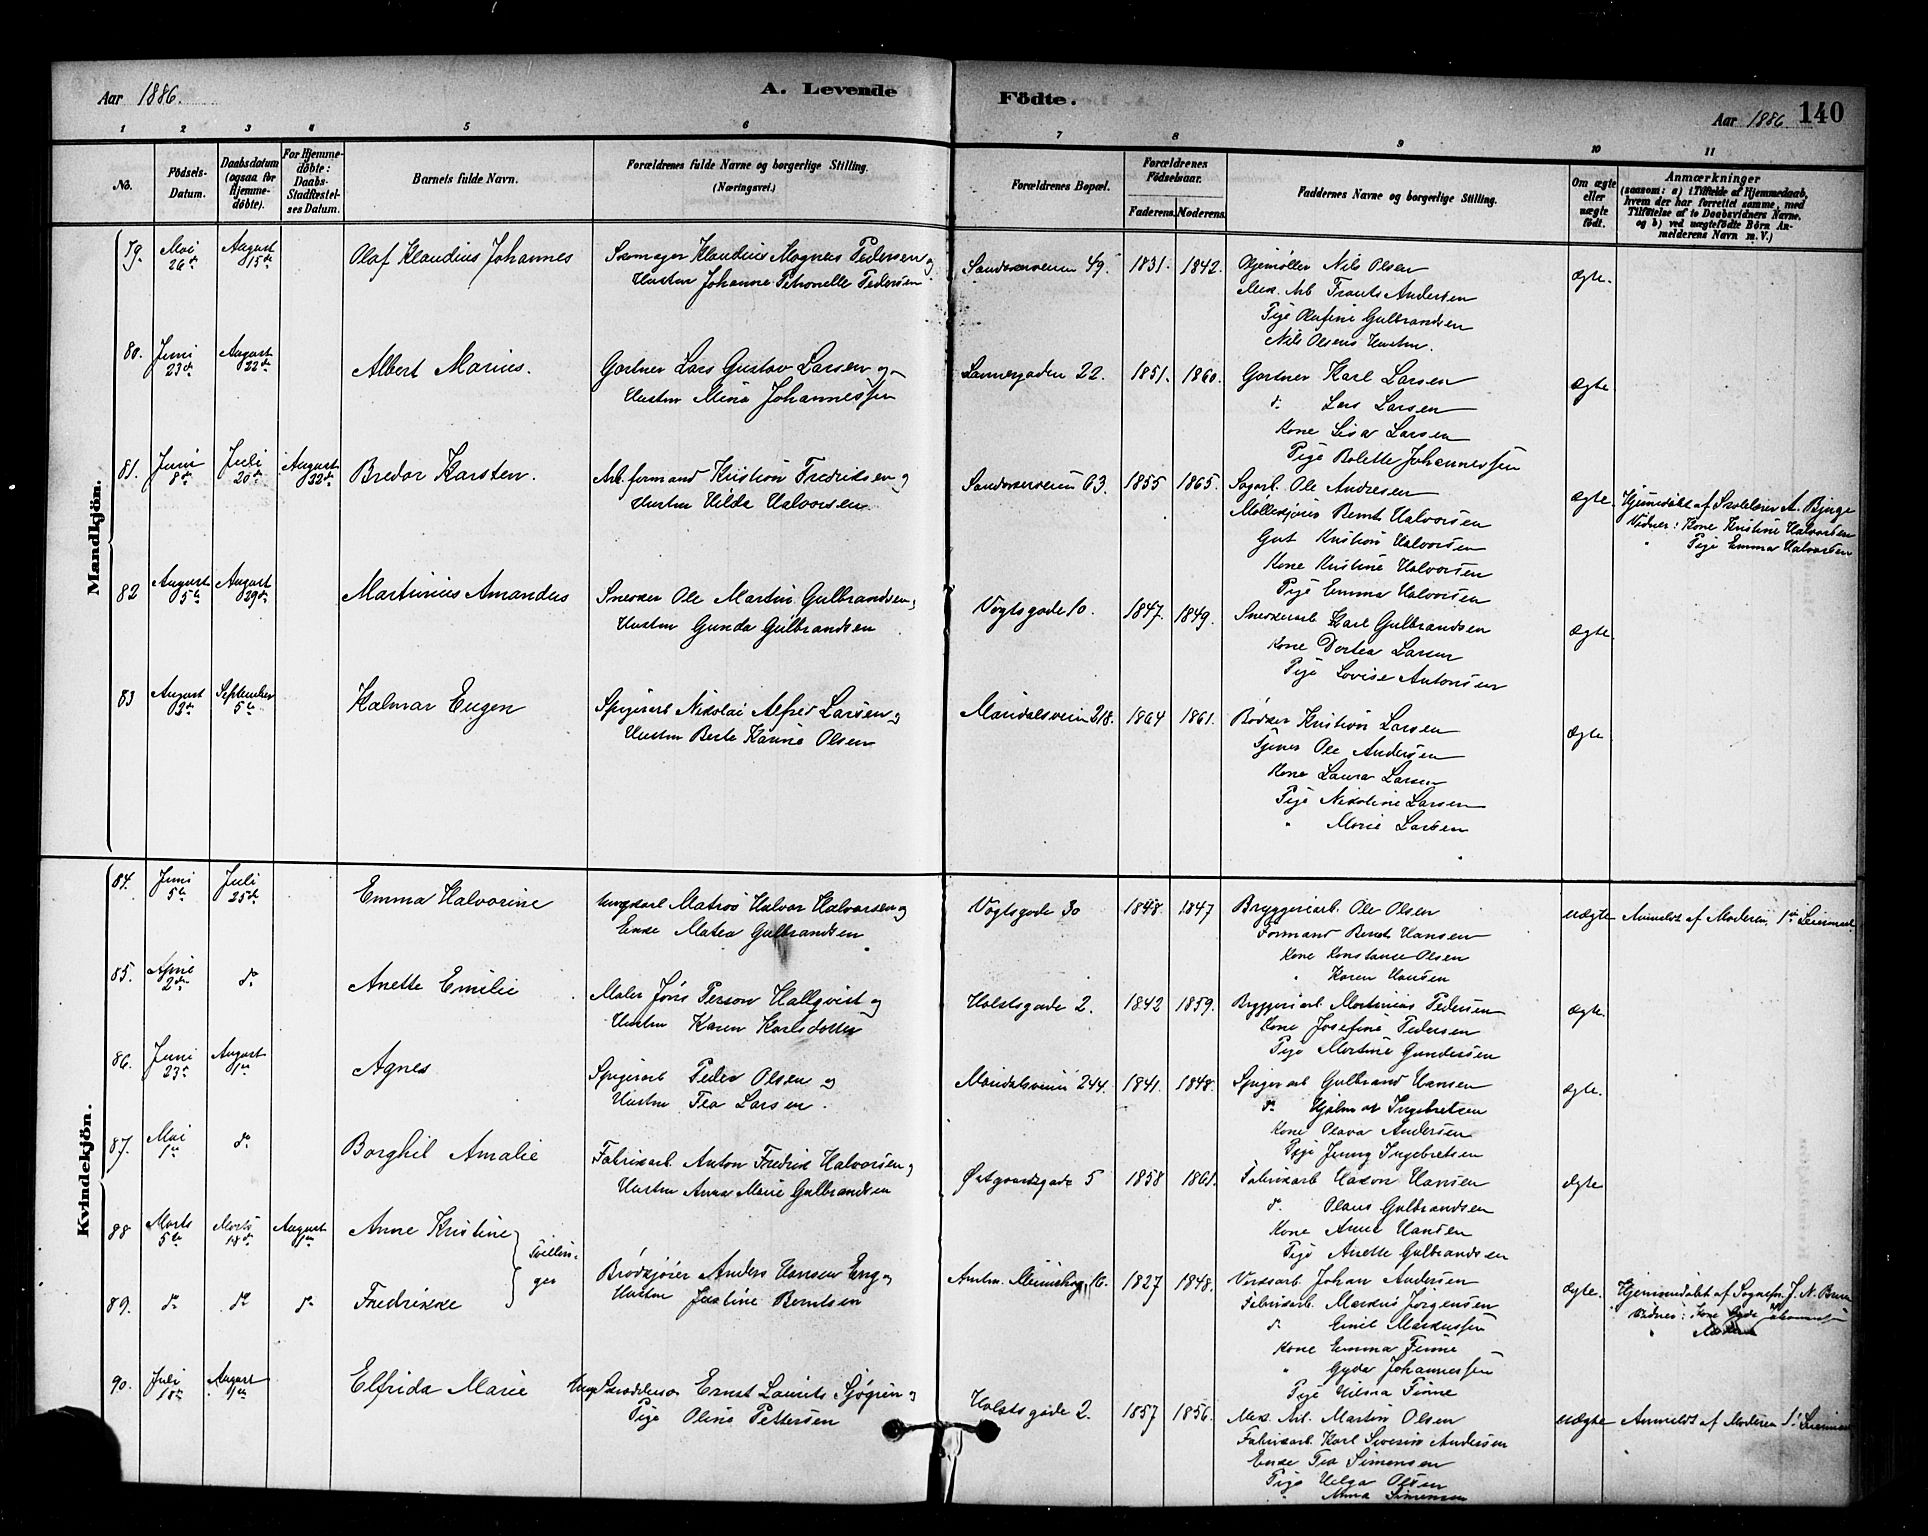 Aar 1886.
A. Levende Födte.
Aar 1886
140
1 2 3 4 5 6 7 8 9 10 11
No.
Födsels-Datum.
Daabsdatum (ogsaa for Hjemme-döbte).
For Hjemme-döbte: Daabs-Stadfæstel-ses Datum.
Barnets fulde Navn.
Forældrenes fulde Navne og borgerlige Stilling.
(Næringsvei.)
Forældrenes Bopæl.
Forældrenes Födselsaar.
Faderens. Moderens.
Faddernes Navne og borgerlige Stilling.
Om ægte eller uægte födt.
Anmærkninger
(saasom: a) i Tilfælde af Hjemmedaab,
hvem der har forrettet samme, med
Tilføielse af to Daabsvidners Navne,
og b) ved uægtefödte Börn An-
melderens Navn m. V.)
Mandkjön.
79. Mai 26de August 15de Olaf Klaudius Johannes
Klaudius Magnus Pedersen og
Hustru Johanne Petronelle Pedersen
Sandakerveien 49. 1831. 1842.
Oljemøller Nils Olsen
Mek. Arb Frants Andersen
Pige Olufine Gulbrandsen
Nils Olsens Hustru.
ægte.
80. Juni 23de August 22de Albert Marius.
Gartner Lars Gustav Larsen og
Hustru Mina Johannessen
Sannergaden 22. 1851. 1860.
Gartner Karl Larsen
do Lars Larsen
Kone Lisa Larsen
Pige Bolette Johannessen
ægte
81. Juni 8de Juli 20de August 22de Bredor Karsten.
Arb. formand Kristian Fredriksen og
Hustru Hilda Halvorsen
Sandakerveien 63. 1855 1865.
Sagarb. Ole Andresen
Møllekjører Bernt Halvorsen
Gut Kristian Halvorsen
Kone Kristine Halvorsen
Pige Emma Halvorsen
ægte.
Hjemmedøbt af Skolelærer A. Bjerge
Vidner: Kone Kristine Halvorsen
" Pige Emma Halvorsen
82 August 5te August 29de Martinius Amandus
Snekker Ole Martin Gulbrandsen og
Hustru Gunda Gulbrandsen
Vogtsgade 10. 1847. 1849.
Snekkerarb Karl Gulbrandsen
Kone Dortea Larsen
Pige Lovise Antonsen
ægte.
83 August 3de September 5te Kalmar Eugen
Spigerarb Nikolai Alfred Larsen og
Hustru Berte Karine Olsen
Maridalsveien 218. 1864 1861.
Bødker Kristian Larsen
Ole Andersen
Kone Laura Larsen
Pige Nikoline Larsen
" Marie Larsen
ægte
Kvindekjön.
84. Juni 5te Juli 25de Emma Halvorine
Ungkarl Matros Halvor Halvorsen og
Enke Matea Gulbrandsen
Vogtsgade 30 1848. 1847
Bryggeriarb. Ole Olsen
Formand Bernt Hansen
Kone Konstance Olsen
" Karen Hansen
uægte Anmeldt af Moderen. 1ste Leiermaal
85. April 2den do Anette Emilie
Maler Jöns Person Hallqvist og
Hustru Karen Karlsdotter
Holstsgade 2. 1842 1859.
Bryggeriarb. Martinius Pedersen
Kone Josefine Pedersen
Pige Martine Gundersen
ægte.
86. Juni 23de August 1ste Agnes
Spigerarb Peder Olsen og
Hustru Tea Larsen.
Maridalsveien 244. 1841. 1848.
Spigerarb Gulbrand Hansen
do Hjalmar Ingebretsen
Kone Olava Andersen
Pige Jenny Ingebretsen
ægte.
87. Mai 1ste do Borghil Amalie
Fabrikarb. Anton Fredrik Halvorsen og
Hustru Anna Marie Gulbrandsen
Østgaardsgade 5 1858 1861.
Fabrikarb Hakon Hansen
do. Olaus Gulbrandsen
Kone Anna Hansen
Pige Anette Gulbrandsen
ægte
88 Marts 5te Marts 18de August 1ste Anne Kristine
Tvillin-
ger
Brødkjører Anders Hansen Eng og
Hustru Justine Berntsen
1827 1848.
Værksarb. Johan Andersen
Fabrikarb. Markus Jørgensen
do Emil Markussen
Kone Emma Finne
" Gyda Johannessen
Pige Hilma Finne
ægte.
Hjemmedøbt af Sognepr. J. N. Brun
Vidner: Kone Gyda Johannessen
89. do do do Fredrikke
90. Juli 18de August 1ste Elfrida Marie
Ernst Laurits Sjögren og
Pige Olina Pettersen
Holstsgade 2. 1857 1856.
Mek. Arb. Martin Olsen
Fabrikarb. Karl Severin Andersen
Enke Tea Simensen
Pige Helga Olsen
" Anna Simensen
uægte Anmeldt af Moderen 1ste Leiermaal